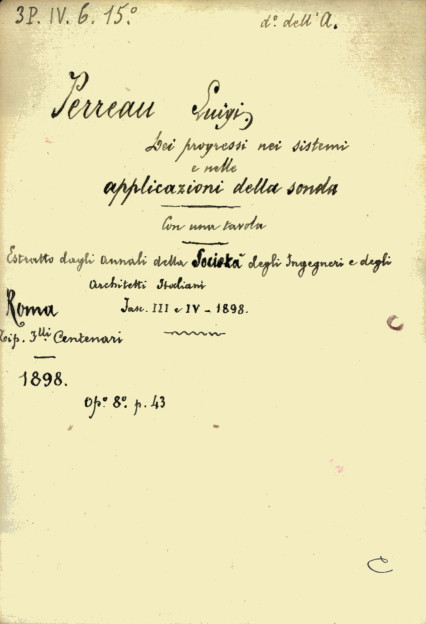 3P. IV. 6. 15.º
d.º dell'A.
Perreau Luigi,
Dei progressi nei sistemi
e nelle
applicazioni della sonda
Con una tavola
Estratto dagli Annali della Società degli Ingegneri e degli
Architetti Italiani
Fasc. III e IV - 1898.
Roma
Tip. F.lli Centenari
1898.
Op.º 8.º p. 43